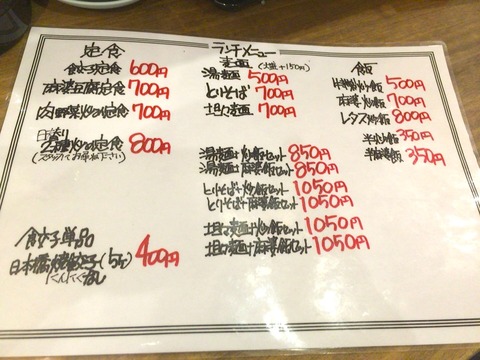 ランチメニュー
定食
餃子定食 600円
麻婆豆腐定食 700円
肉野菜炒め定食 700円
日替り
2種炒め定食 800円
(スタッフにお尋ね下さい)
餃子単品
日本橋焼餃子(5ヶ) 400円
にんにくなし
麺 (大盛+150円)
湯麺 500円
とりそば 700円
坦々麺 700円
湯麺+炒飯セット 850円
湯麺+麻婆飯セット 850円
とりそば+炒飯セット 1050円
とりそば+麻婆飯セット 1050円
坦々麺+炒飯セット 1050円
坦々麺+麻婆飯セット 1050円
飯
炒飯 500円
麻婆飯 700円
レタス炒飯 800円
半炒飯 350円
半麻婆飯 350円